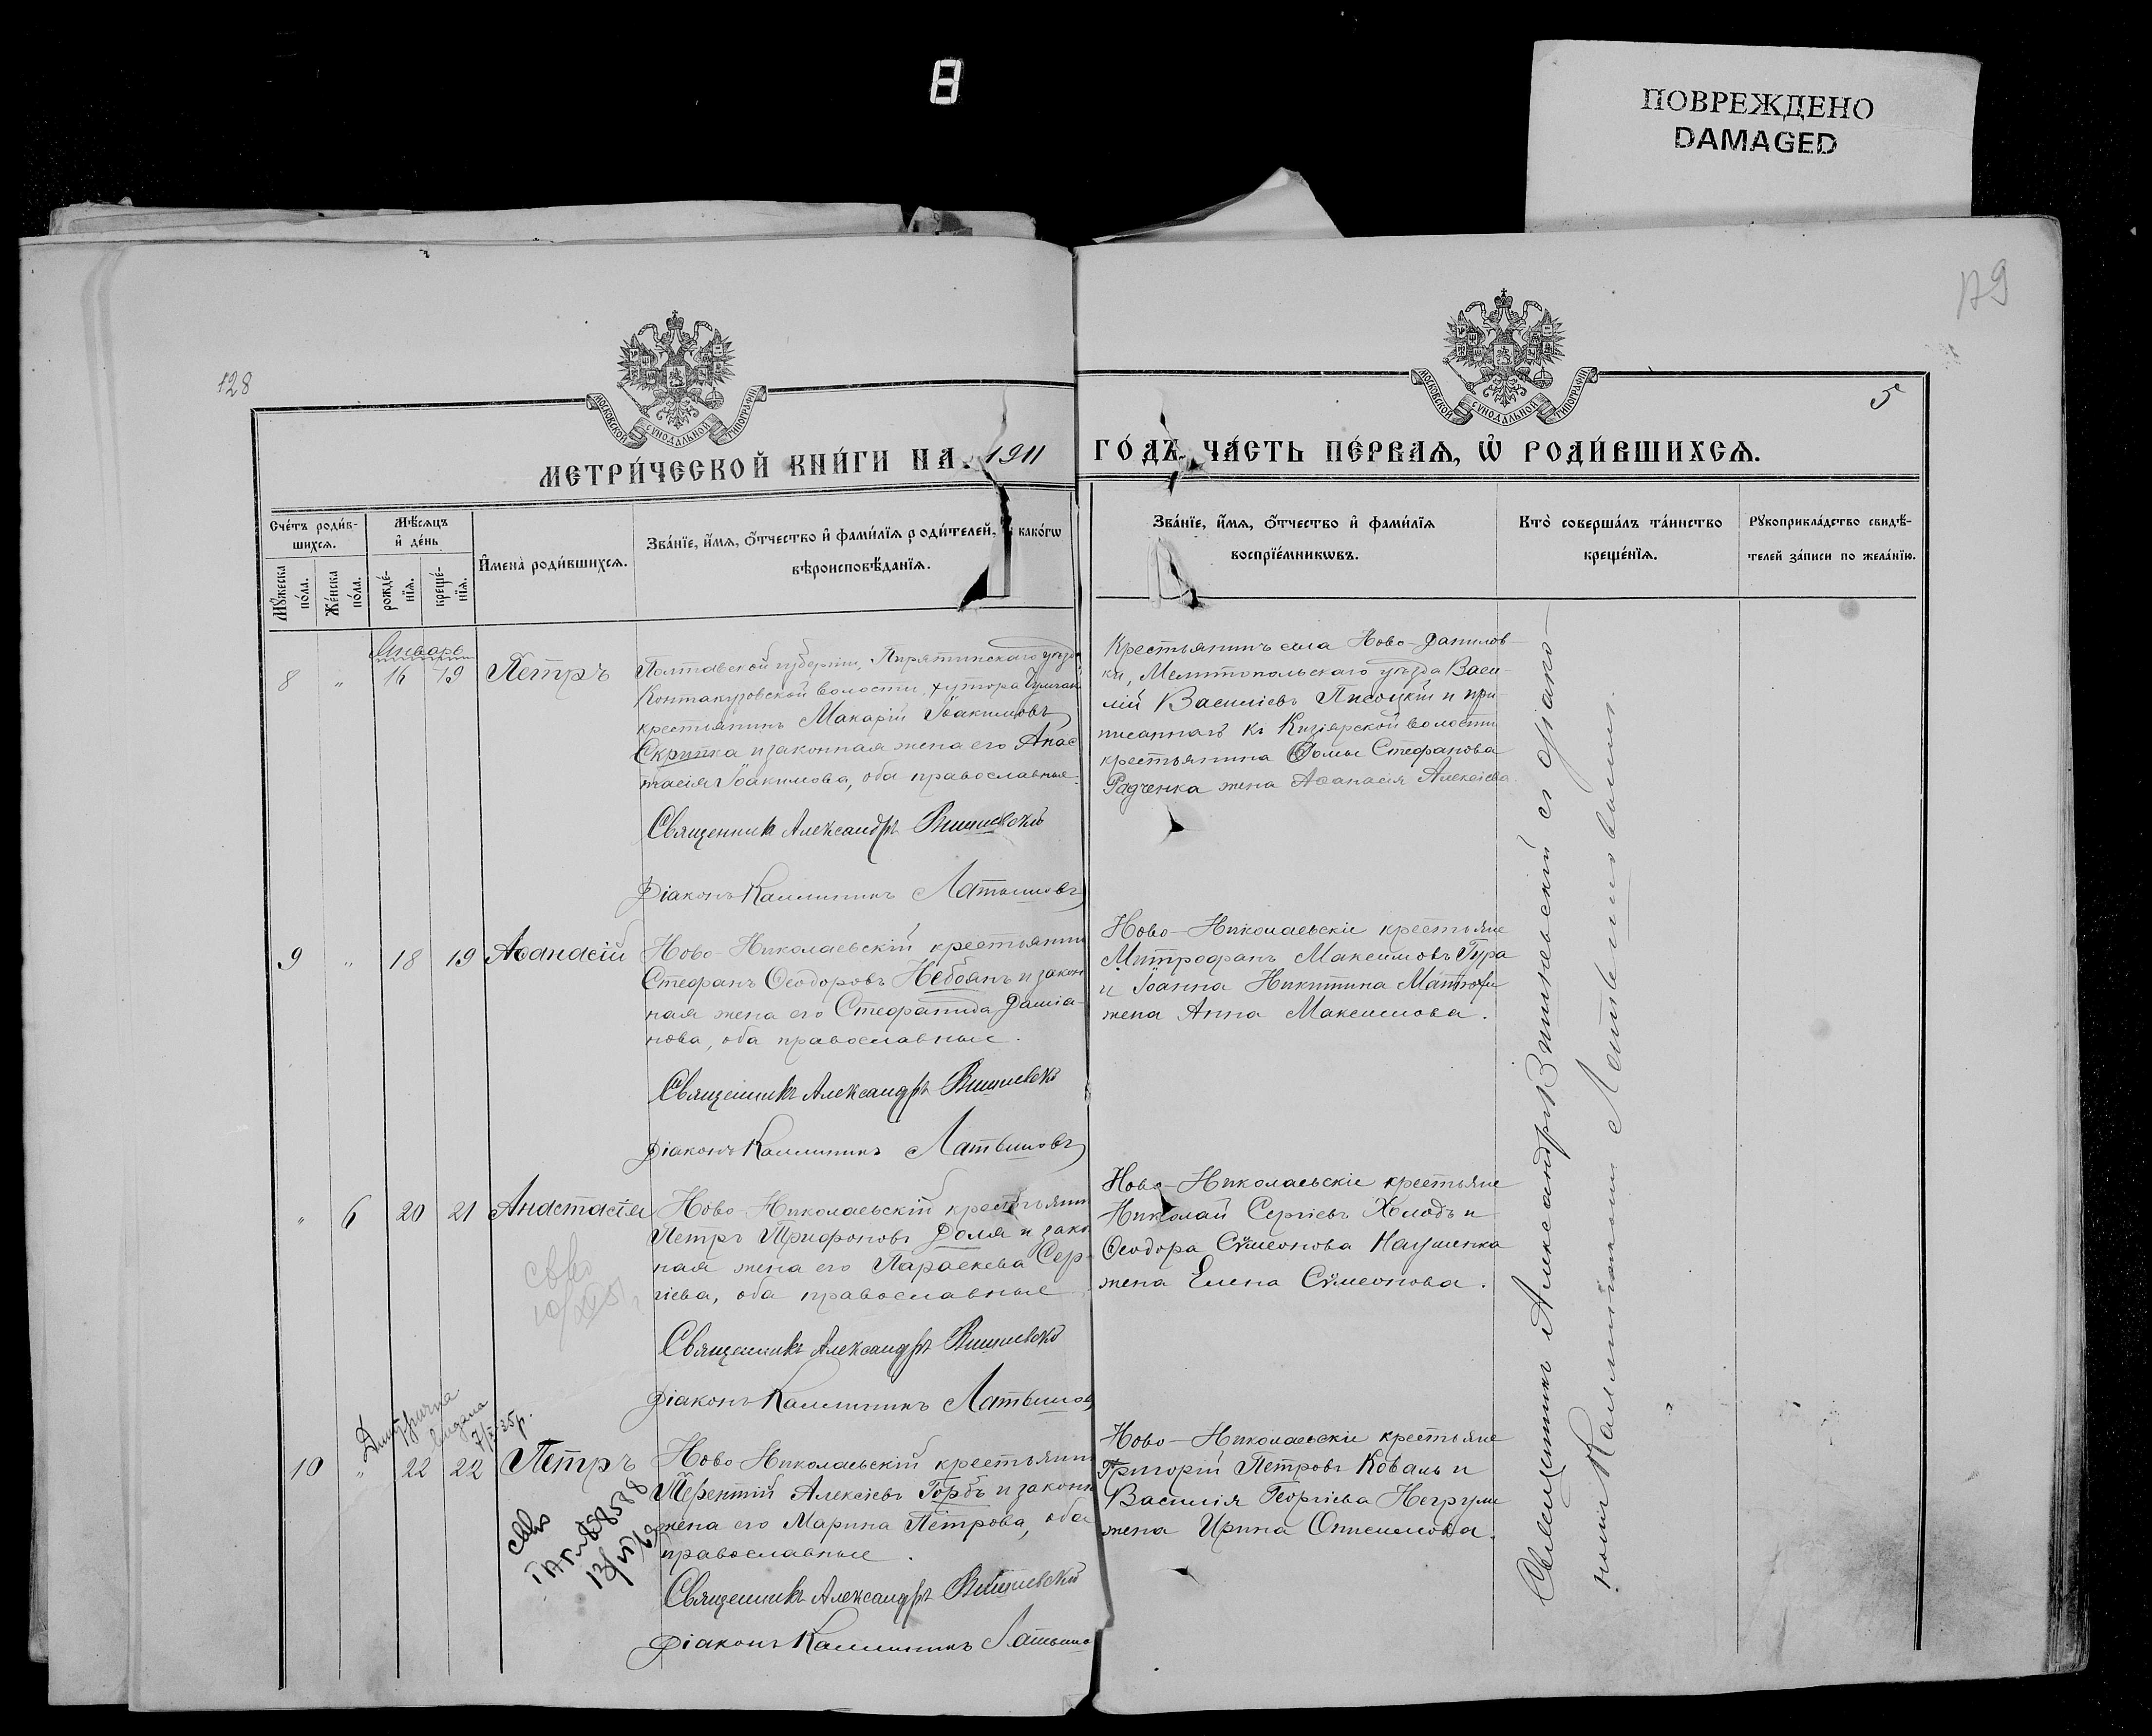 8
ПОВРЕЖДЕНО
DAMAGED
128
129
5
МОСКОВСКОЙ СѴНОДАЛЬНОЙ ТИПОГРАФІИ
МОСКОВСКОЙ СѴНОДАЛЬНОЙ ТИПОГРАФІИ
МЕТРИ́ЧЕСКОЙ КНИ́ГИ НА 1911 ГО́ДЪ. ЧА́СТЬ ПЕ́РВАЯ, Ѽ РОДИ́ВШИХСЯ.
Сче́тъ роди́в-
шихся.
Мѣ́сяцъ
и҆ де́нь
Мꙋ́жеска по́ла.
Же́нска по́ла.
рожде́-
нїя.
креще́-
нїя.
И҆мена̀ роди́вшихся.
Зва́нїе, и҆́мя, ѻ҆́тчество и҆ фами́лїя роди́телей, и҆ како́гѡ
вѣроисповѣ́данїя.
Зва́нїе, и҆́мя, ѻ҆́тчество и҆ фами́лїя
воспрїе́мникѡвъ.
Кто̀ соверша́лъ та́инство
креще́нїя.
Рꙋкоприкла́дство свидѣ́-
телей за́писи по жела́нїю.
Январь
8 " 16 19 Петръ
Полтавской губерніи, Пирятинскаго уѣзда
волости, хутора
крестьянинъ Макарій Іоакимовъ
Скрипка и законная жена его Анас
тасія Іоакимова, оба православные.
Священникъ Александръ Вишневскій
Діаконъ Каллиникъ Латышовъ
Крестьянинъ села Ново-Данилов-
ки, Мелитопольскаго уѣзда Васи-
лій Василіевъ Писоцкій и при
писаннаго къ Кизіярской волости
крестьянина Ѳомы Стефанова
Радченка жена Аѳанасія Алексіева.
9 " 18 19 Аѳанасій
Ново-Николаевскій крестьянин
Стефанъ Ѳеодоровъ Небоянъ и закон
ная жена его Стефанида Даміа-
нова, оба православные.
Священникъ Александръ Вишневскій
Діаконъ Каллиникъ Латышовъ
Ново-Николаевскіе крестьяне
Митрофанъ Максимовъ Гура
и Іоанна Никитина
жена Анна Максимова.
" 6 20 21 Анастасія
Ново-Николаевскій крестьянин
Петръ Трифоновъ Доля и зако
ная жена его Параскева Сер-
гіева, оба православные
Священникъ Александръ Вишневскій
Діаконъ Каллиникъ Латышов
Ново-Николаевскіе крестьяне
Николай Сергіевъ Холодъ и
Ѳеодора Сѵмеонова Науменка
жена Елена Сѵмеонова.
10 " 22 22 Петръ
Ново-Николаевскій крестьянин
Терентій Алексіевъ Горбъ и законн
жена его Марина Петрова, оба
православные.
Священникъ Александръ Вишневскій
Діаконъ Каллиникъ Латышо
Ново-Николаевскіе крестьяне
Григорій Петровъ Коваль и
Василія Георгіева
жена Ирина Онисимова.
Священникъ Александръ Вишневскій съ діако-
номъ Каллиникомъ Латышовымъ.